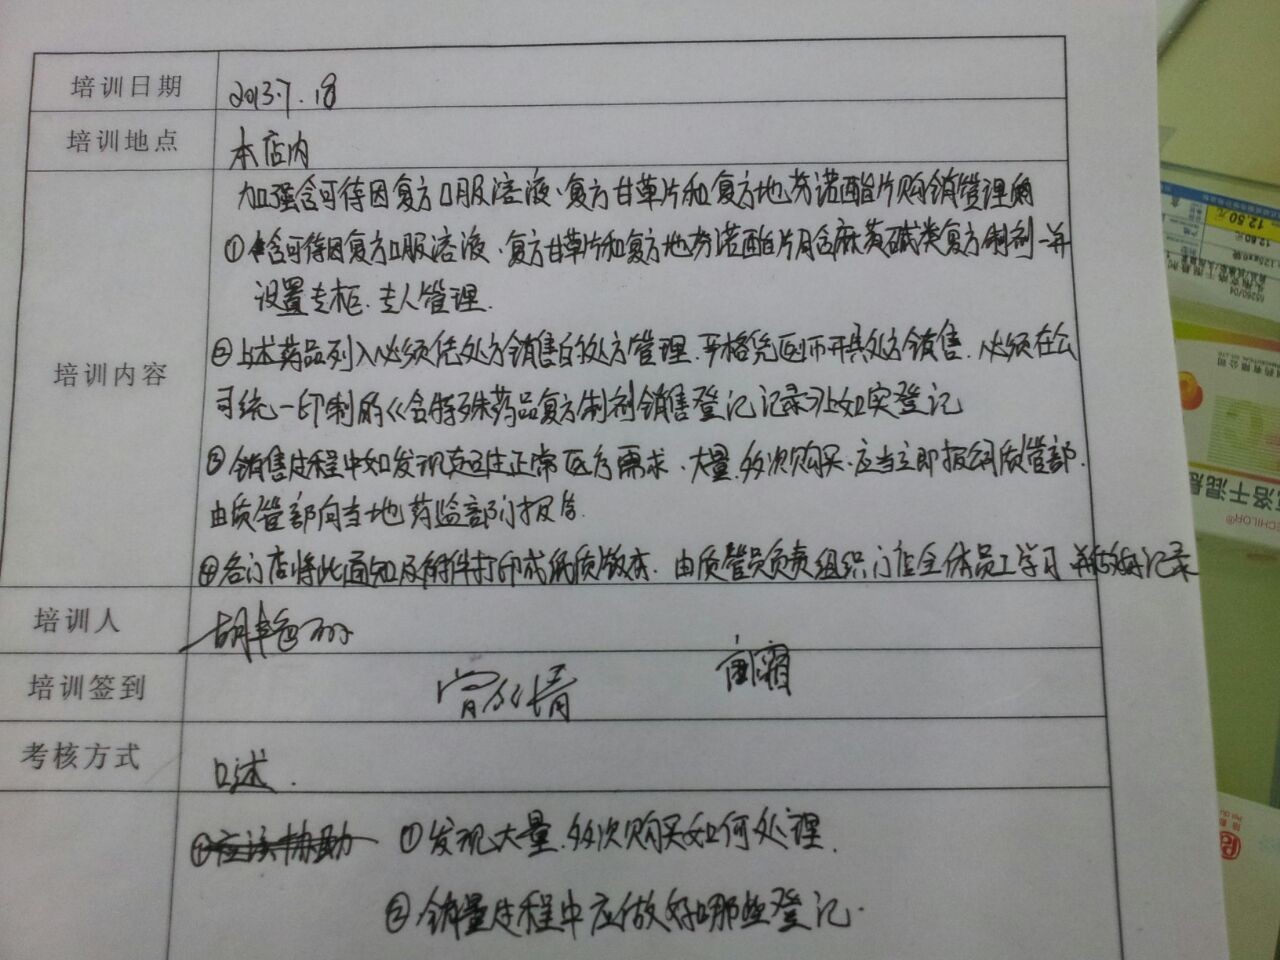 培训日期 2013.7.18
培训地点 本店内
加强含可待因复方口服溶液、复方甘草片和复方地芬诺酯片购销管理的
①含可待因复方口服溶液、复方甘草片和复方地芬诺酯片同含麻黄碱类复方制剂一并
设置专柜、专人管理.
培训内容
②上述药品列入必须凭处方销售的处方管理.严格凭医师开具处方销售.必须在公
司统一印制的《含特殊药品复方制剂销售登记记录》上如实登记
③销售过程中如发现超过正常医疗需求、大量、多次购买、应当立即报公司质管部.
由质管部向当地药监部门报告.
④各门店将此通知及附件打印成纸质版本.由质管员负责组织门店全体员工学习并做好记录
培训人 胡艳丽
培训签到
考核方式 口述.
①应该协助 ①发现大量.多次购买如何处理.
②销量过程中应做好哪些登记.
12.50元
12.60元
65260/04
洛干混悬
ECHILOR®